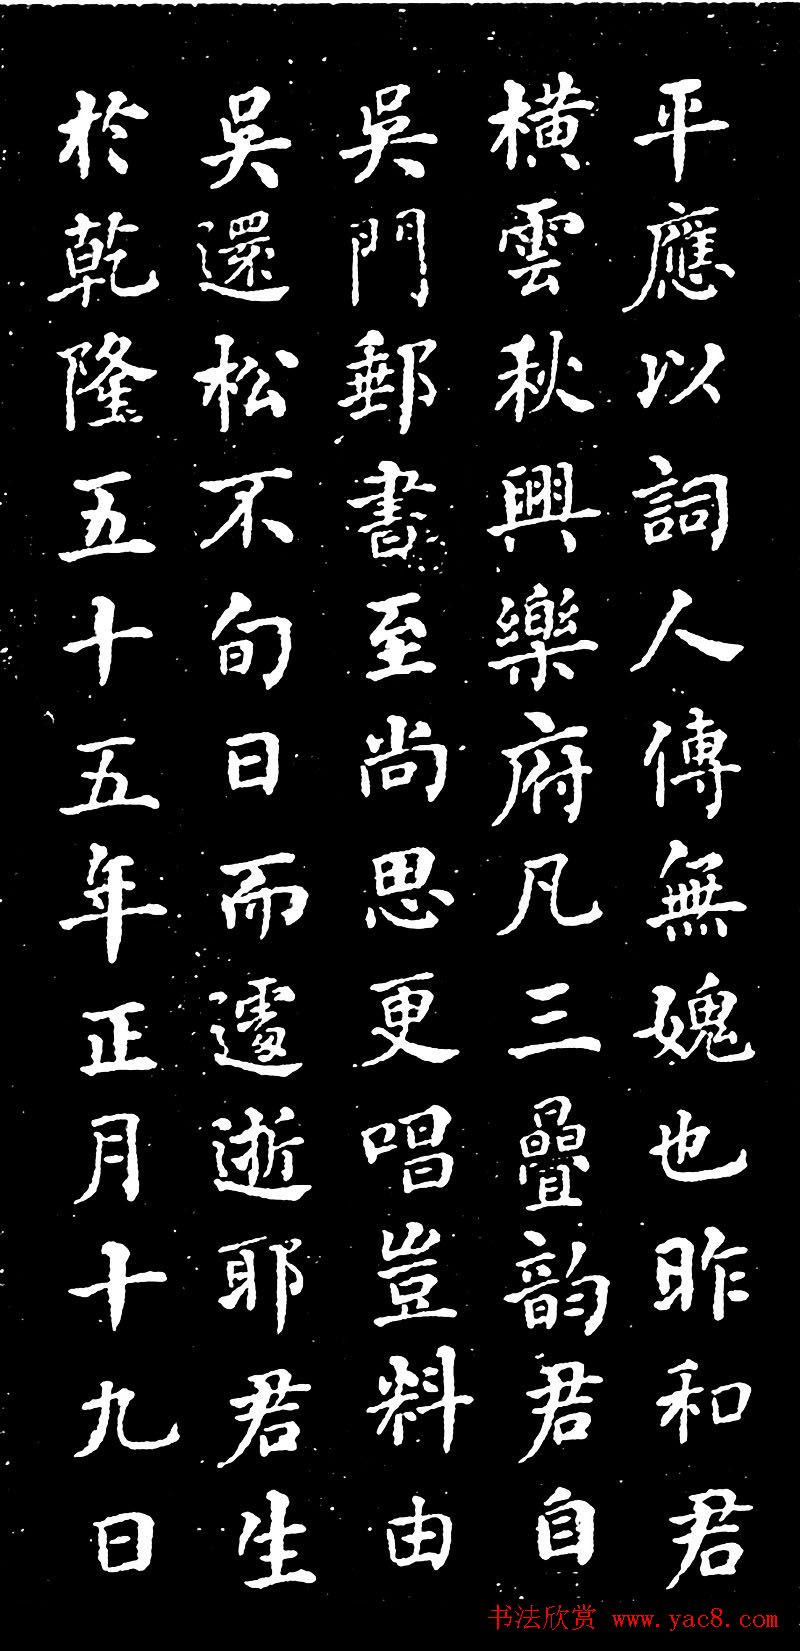 平應以詞人傳無媿也昨和君
橫雲秋興樂府凡三疊韵君自
吳門郵書至尚思更唱豈料由
吳還松不旬日而遽逝耶君生
於乾隆五十五年正月十九日
书法欣赏 www.yac8.com